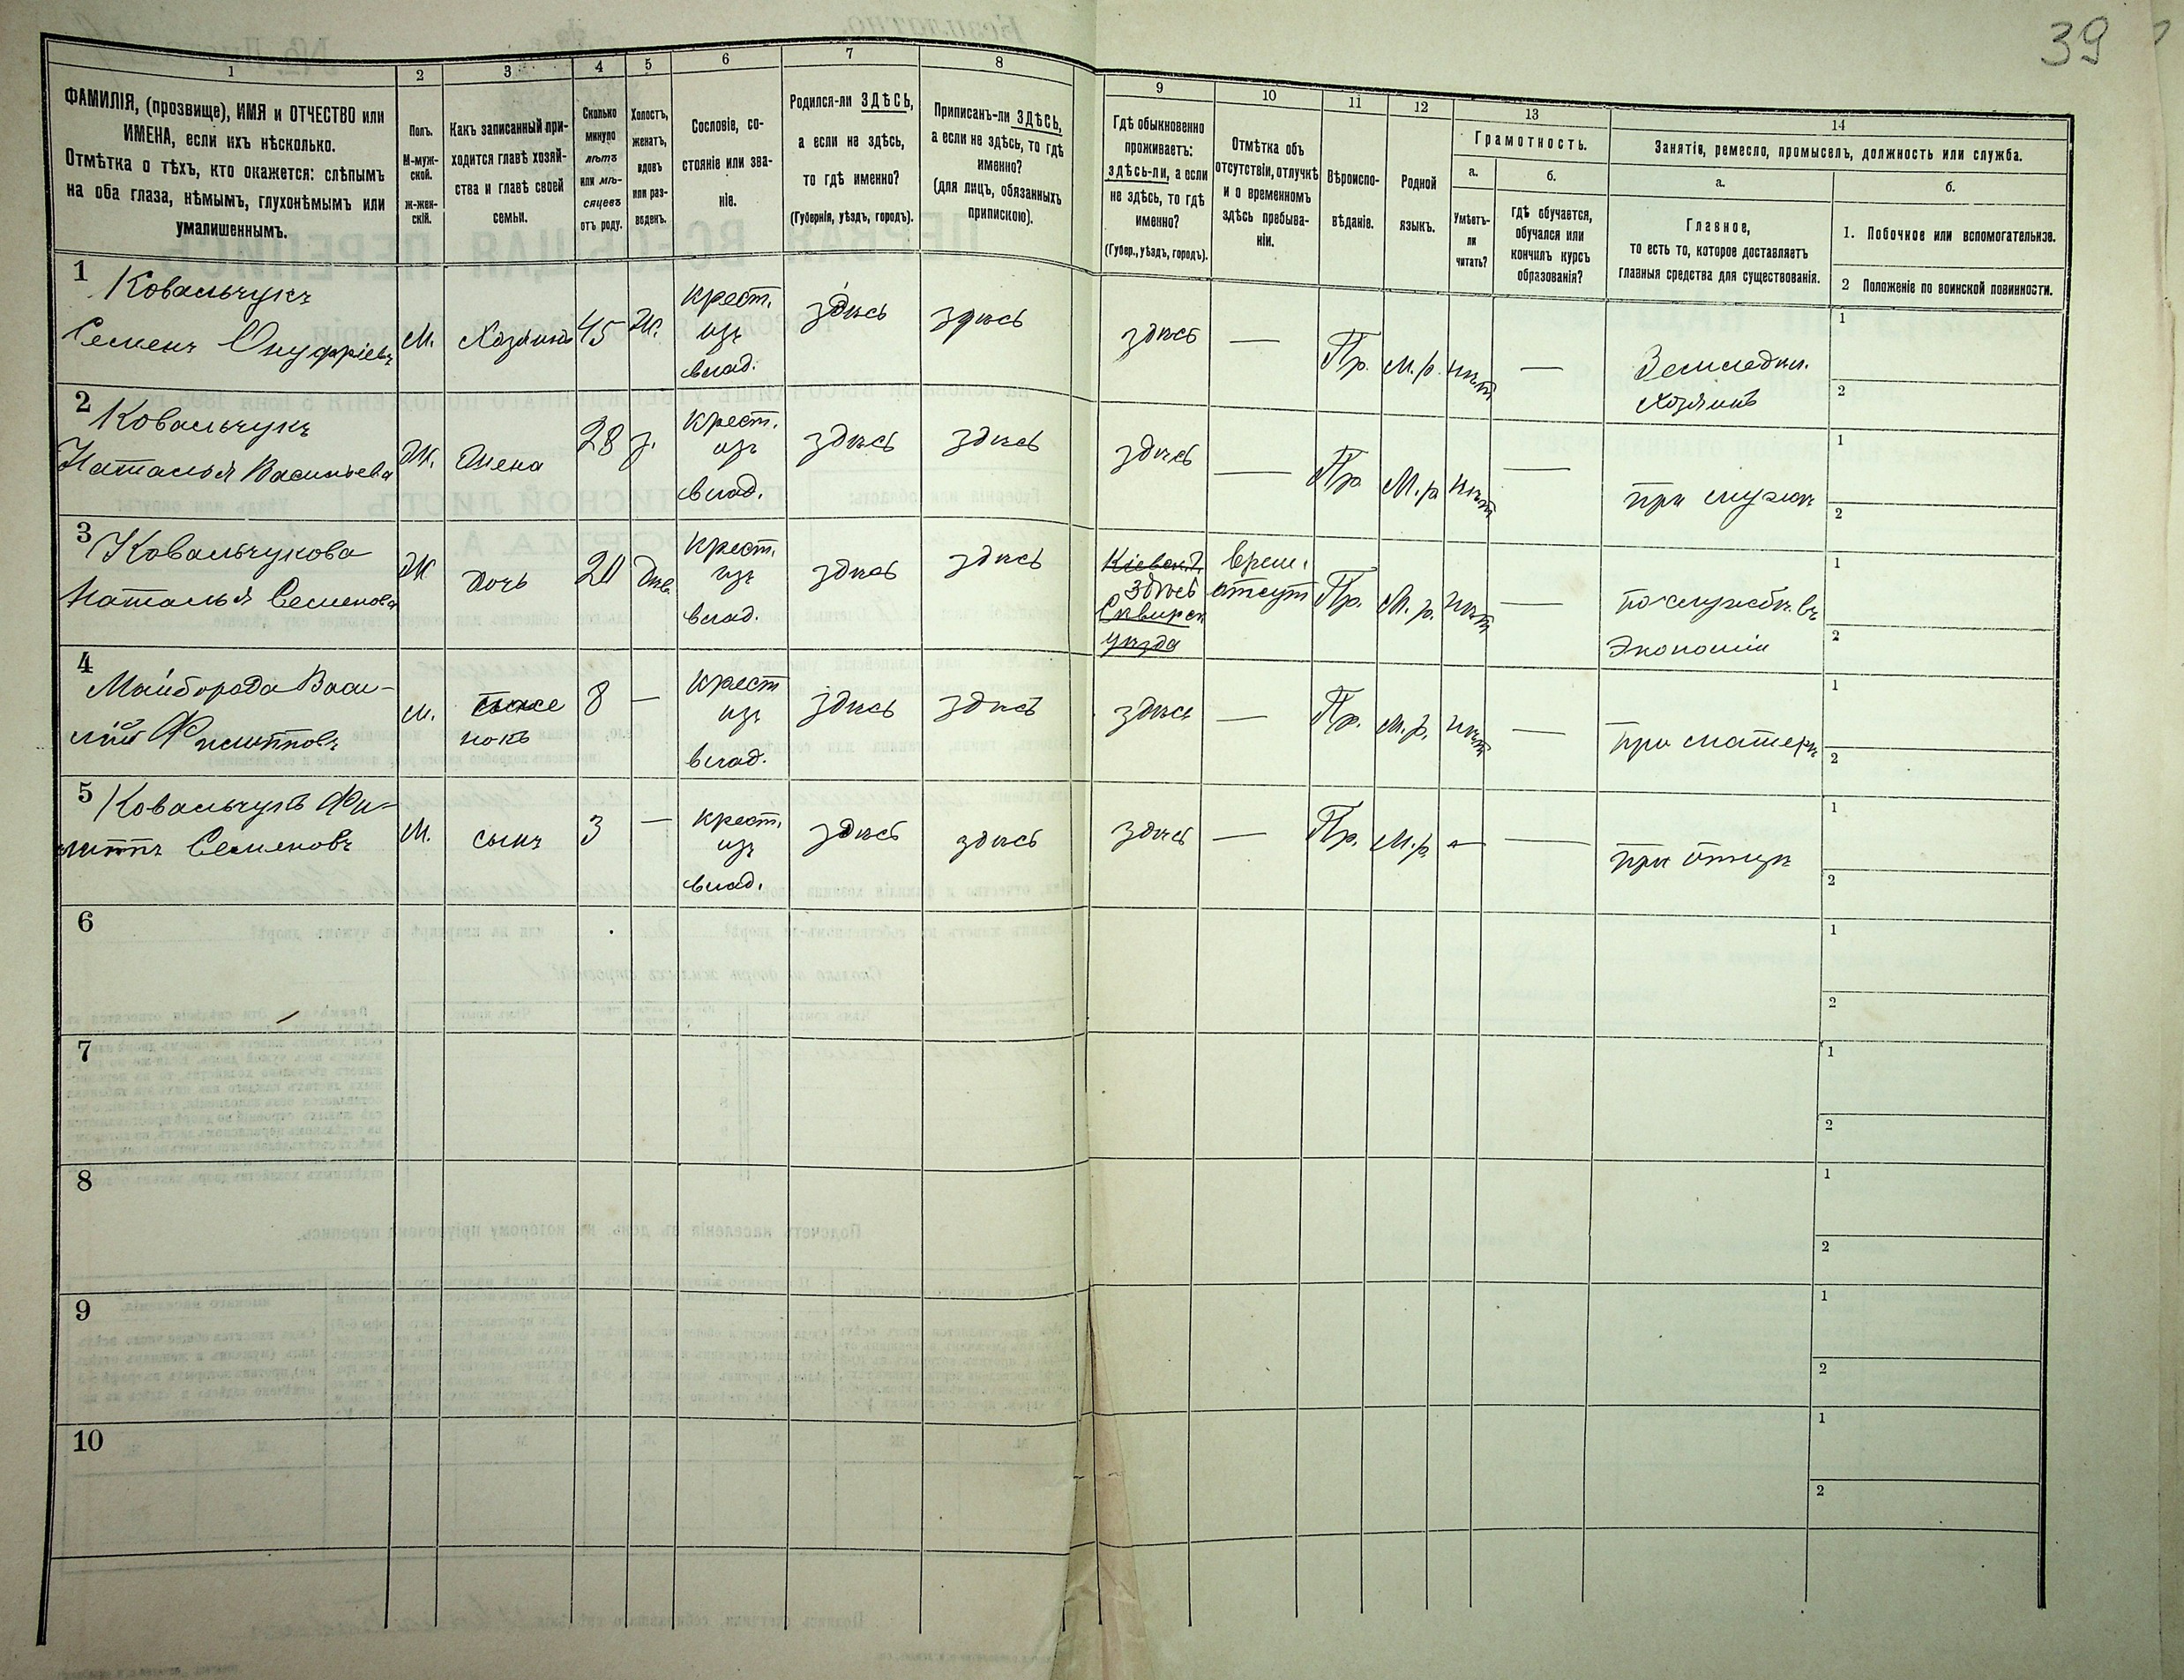 39
1
2
3
4
5
6
7
8
9
10
11
12
13
14
ФАМИЛІЯ, (прозвище), ИМЯ и ОТЧЕСТВО или
ИМЕНА, если ихъ нѣсколько.
Отмѣтка о тѣхъ, кто окажется: слѣпымъ
на оба глаза, нѣмымъ, глухонѣмымъ или
умалишеннымъ.
Полъ.
М-муж-
ской.
ж-жен-
скій.
Какъ записанный при-
ходится главѣ хозяй-
ства и главѣ своей
семьи.
Сколько
минуло
лѣтъ
или мѣ-
сяцевъ
отъ роду.
Холостъ,
женатъ,
вдовъ
или раз-
веденъ.
Сословіе, со-
стояніе или зва-
ніе.
Родился-ли ЗДѢСЬ,
а если не здѣсь,
то гдѣ именно?
(Губернія, уѣздъ, городъ).
Приписанъ-ли ЗДѢСЬ,
а если не здѣсь, то гдѣ
именно?
(для лицъ, обязанныхъ
припискою).
Гдѣ обыкновенно
проживаетъ:
здѣсь-ли, а если
не здѣсь, то гдѣ
именно?
(Губер., уѣздъ, городъ).
Отмѣтка объ
отсутствіи, отлучкѣ
и о временномъ
здѣсь пребыва-
ніи.
Вѣроиспо-
вѣданіе.
Родной
языкъ.
Грамотность.
а.
Умѣетъ-
ли
читать?
б.
гдѣ обучается,
обучался или
кончилъ курсъ
образованія?
Занятіе, ремесло, промыселъ, должность или служба.
а.
Главное,
то есть то, которое доставляетъ
главныя средства для существованія.
б.
1. Побочное или вспомогательное.
2 Положеніе по воинской повинности.
1
Ковальчукъ
Семенъ Онуфріевъ
М.
Хозяинъ
45
Ж.
крест.
изъ
влад.
здѣсь
здѣсь
здѣсь
—
Пр.
М.р.
нѣтъ
—
Земледѣл.
хозяинъ
1
2
2
Ковальчукъ
Наталья Васильева
Ж.
Жена
28
з.
крест.
изъ
влад.
здѣсь
здѣсь
здѣсь
—
Пр
М.р
нѣтъ
—
при мужѣ
1
2
3
Ковальчукова
Наталья Семенова
Ж
дочь
20
Дѣв.
крест.
изъ
влад.
здѣсь
здѣсь
здѣсь
Сквирск
уѣзда
врем.
отсут
Пр.
М.р.
нѣтъ
—
по службѣ въ
Экономіи
1
2
4
Майборода Васи-
лій Филипповъ
М.
8
—
крест
изъ
влад.
здѣсь
здѣсь
здѣсь
—
Пр.
М.р.
нѣтъ
—
при матери
1
2
5
Ковальчукъ Фи-
липпъ Семеновъ
М.
сынъ
3
—
крест.
изъ
влад.
здѣсь
здѣсь
здѣсь
—
Пр.
М.р.
—
—
при отцѣ
1
2
6
1
2
7
1
2
8
1
2
9
1
2
10
1
2